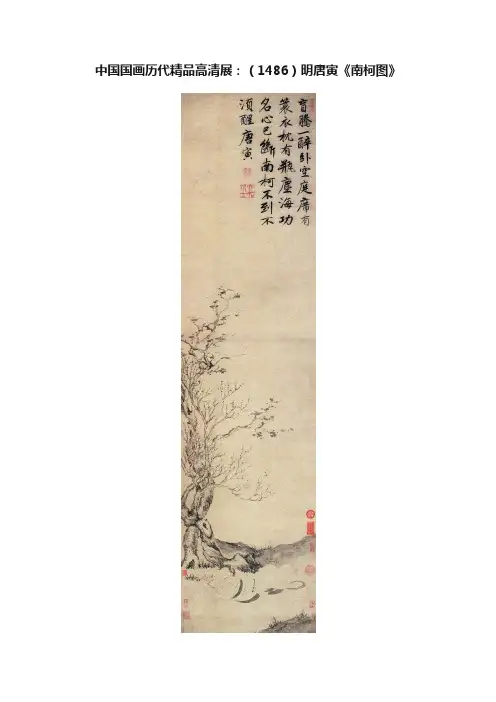 中国国画历代精品高清展：（1486）明唐寅《南柯图》
騰一醉卧空庭席有
蓑衣枕有瓶塵海功
名心已斷南柯不到不
須醒唐寅